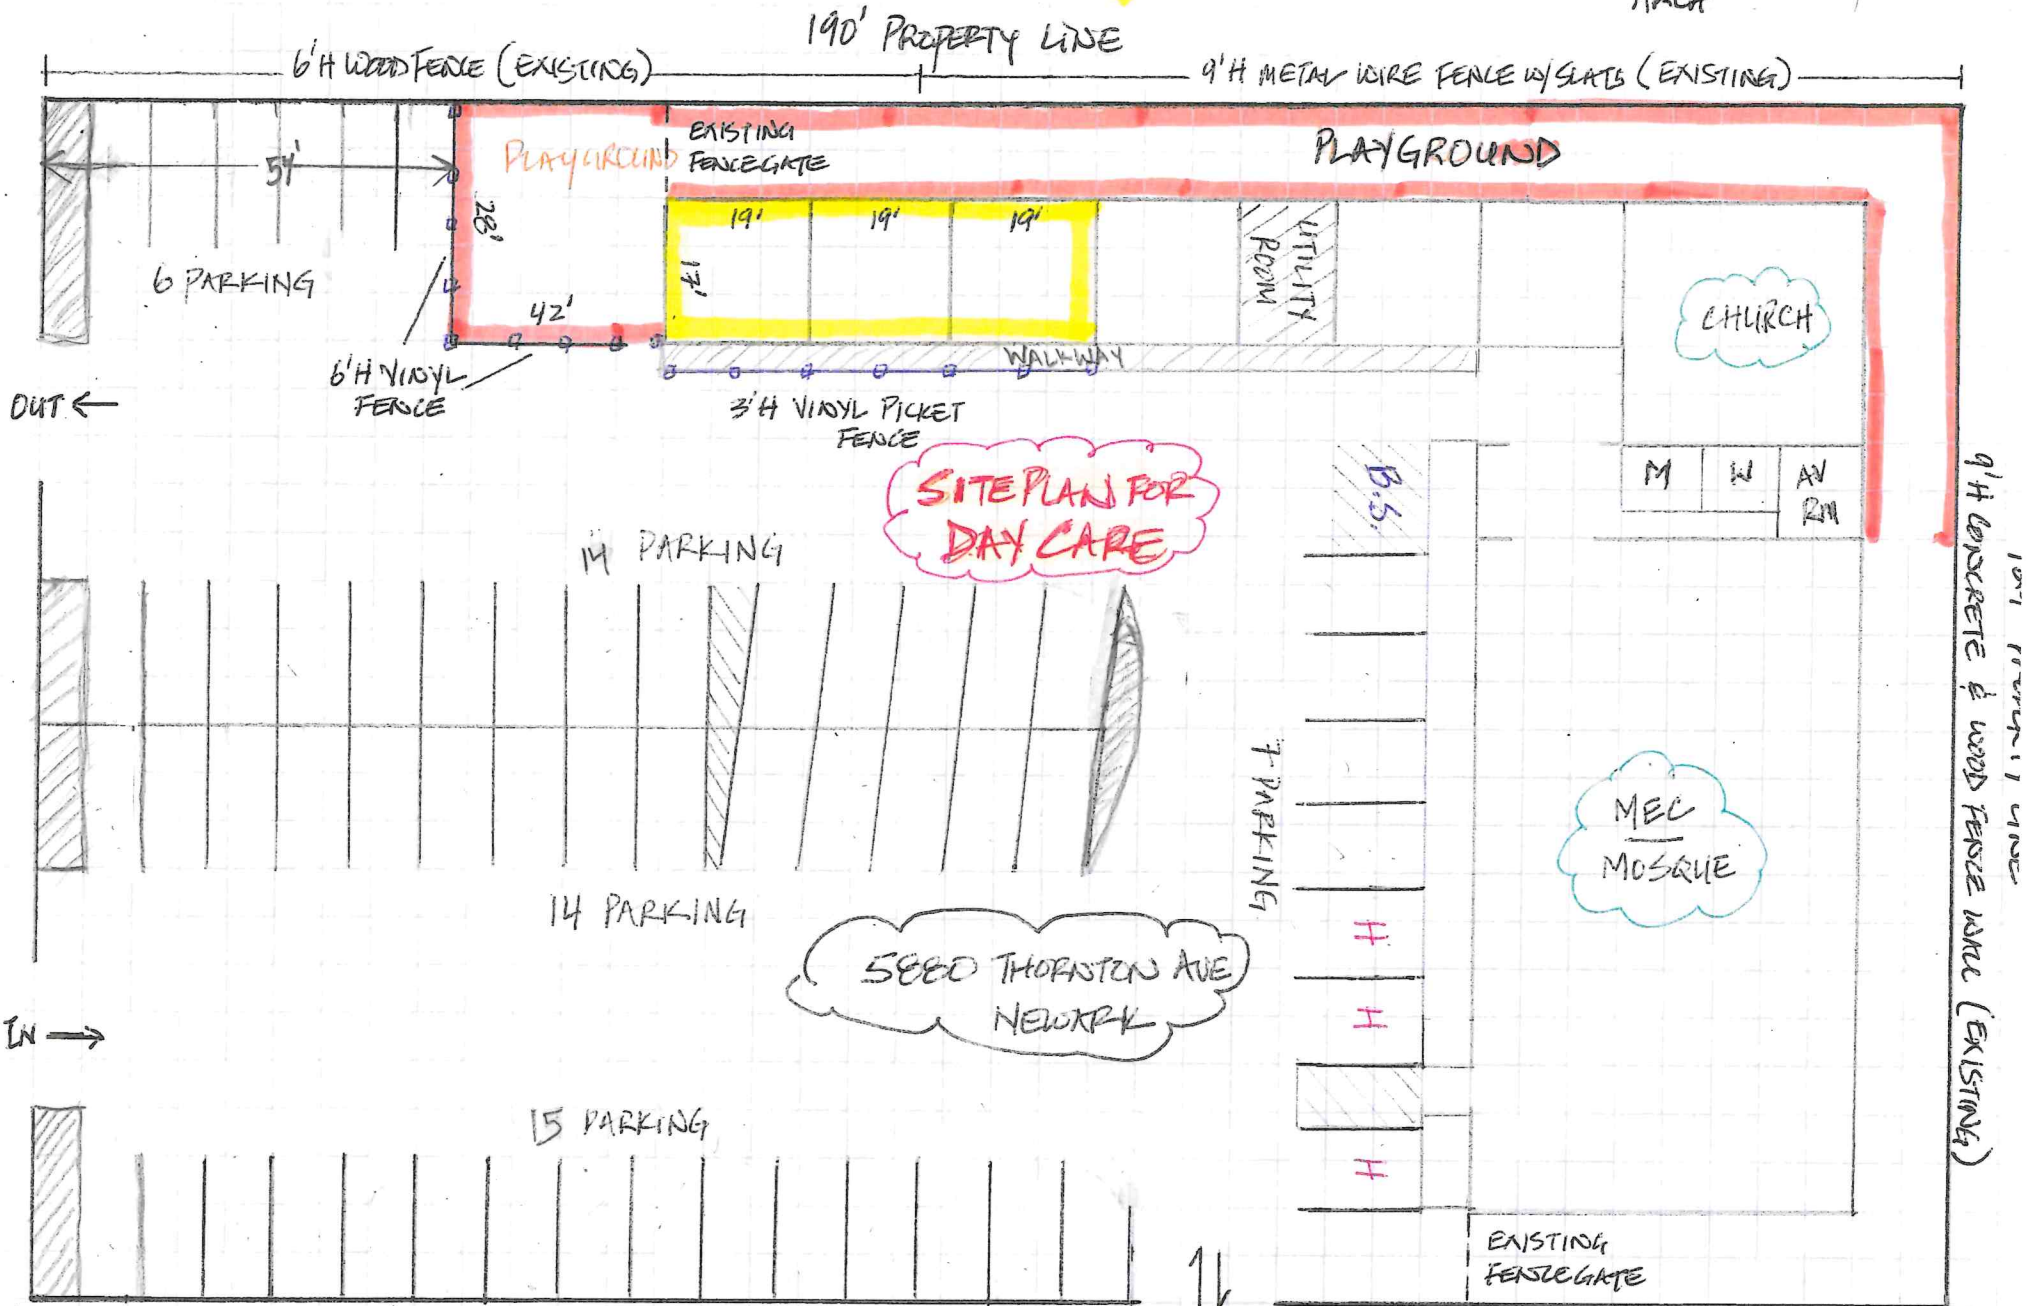 190' PROPERTY LINE
6'H WOOD FENCE (EXISTING)
9'H METAL WIRE FENCE W/SLATS (EXISTING)
54'
6 PARKING
PLAYGROUND
28'
42'
EXISTING
FENCE GATE
PLAYGROUND
19'
19'
19'
17'
UTILITY
ROOM
CHURCH
WALKWAY
6'H VINYL
FENCE
3'H VINYL PICKET
FENCE
OUT ←
SITE PLAN FOR
DAY CARE
B.S.
M
W
AV
RM
14 PARKING
14 PARKING
7 PARKING
MEC
MOSQUE
5880 THORNTON AVE
NEWARK
H
H
H
IN →
15 PARKING
EXISTING
FENCE GATE
9'H CONCRETE & WOOD FENCE WALL (EXISTING)
LINE